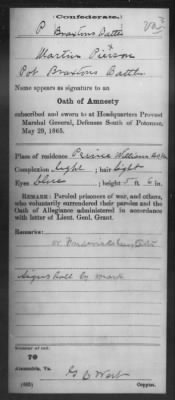 (Confederate.)
P Braxtons Batty Va
Martin Pierson
Pvt Braxtons Battery
Name appears as signature to an
Oath of Amnesty
subscribed and sworn to at Headquarters Provost
Marshal General, Defenses South of Potomac,
May 29, 1865.
Place of residence Prince William Co Va
Complexion light ; hair light
Eyes blue ; height 5 ft. 6 in.
REMARK: Paroled prisoners of war, and others,
who voluntarily surrendered their paroles and the
Oath of Allegiance administered in accordance
with letter of Lieut. Genl. Grant.
Remarks:
or Fredericksburg
by mark
Number of roll:
70
Alexandria, Va.
(665)
Copyist.